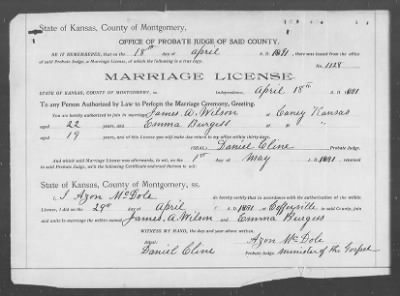 State of Kansas, County of Montgomery,
OFFICE OF PROBATE JUDGE OF SAID COUNTY.
BE IT REMEMBERED, that on the 18th day of April A. D. 1891, there was issued from the office
of said Probate Judge, a Marriage License, of which the following is a true copy. No. 1128
MARRIAGE LICENSE.
STATE OF KANSAS, COUNTY OF MONTGOMERY, ss. Independence, April 18th A. D. 1891
To any Person Authorized by Law to Perform the Marriage Ceremony, Greeting.
You are hereby authorized to join in marriage James A. Wilson of Caney Kansas
aged 22 years, and Emma Burgess of " "
aged 19 years, and of this License you will make due return to my office within thirty days.
Daniel Cline
Probate Judge.
And which said Marriage License was afterwards, to wit, on the 1st day of May A. D. 1891, returned
to said Probate Judge, with the following Certificate endorsed thereon to wit:
State of Kansas, County of Montgomery, ss.
I, Azon McDole do hereby certify that in accordance with the authorization of the within
License, I did on the 29th day of April A. D. 1891 at Coffeyville in said County, join
and unite in marriage the within named James. A. Wilson and Emma Burgess
WITNESS MY HAND, the day and year above written.
Attest: Azon McDole
Daniel Cline Probate Judge. Minister of the Gospel